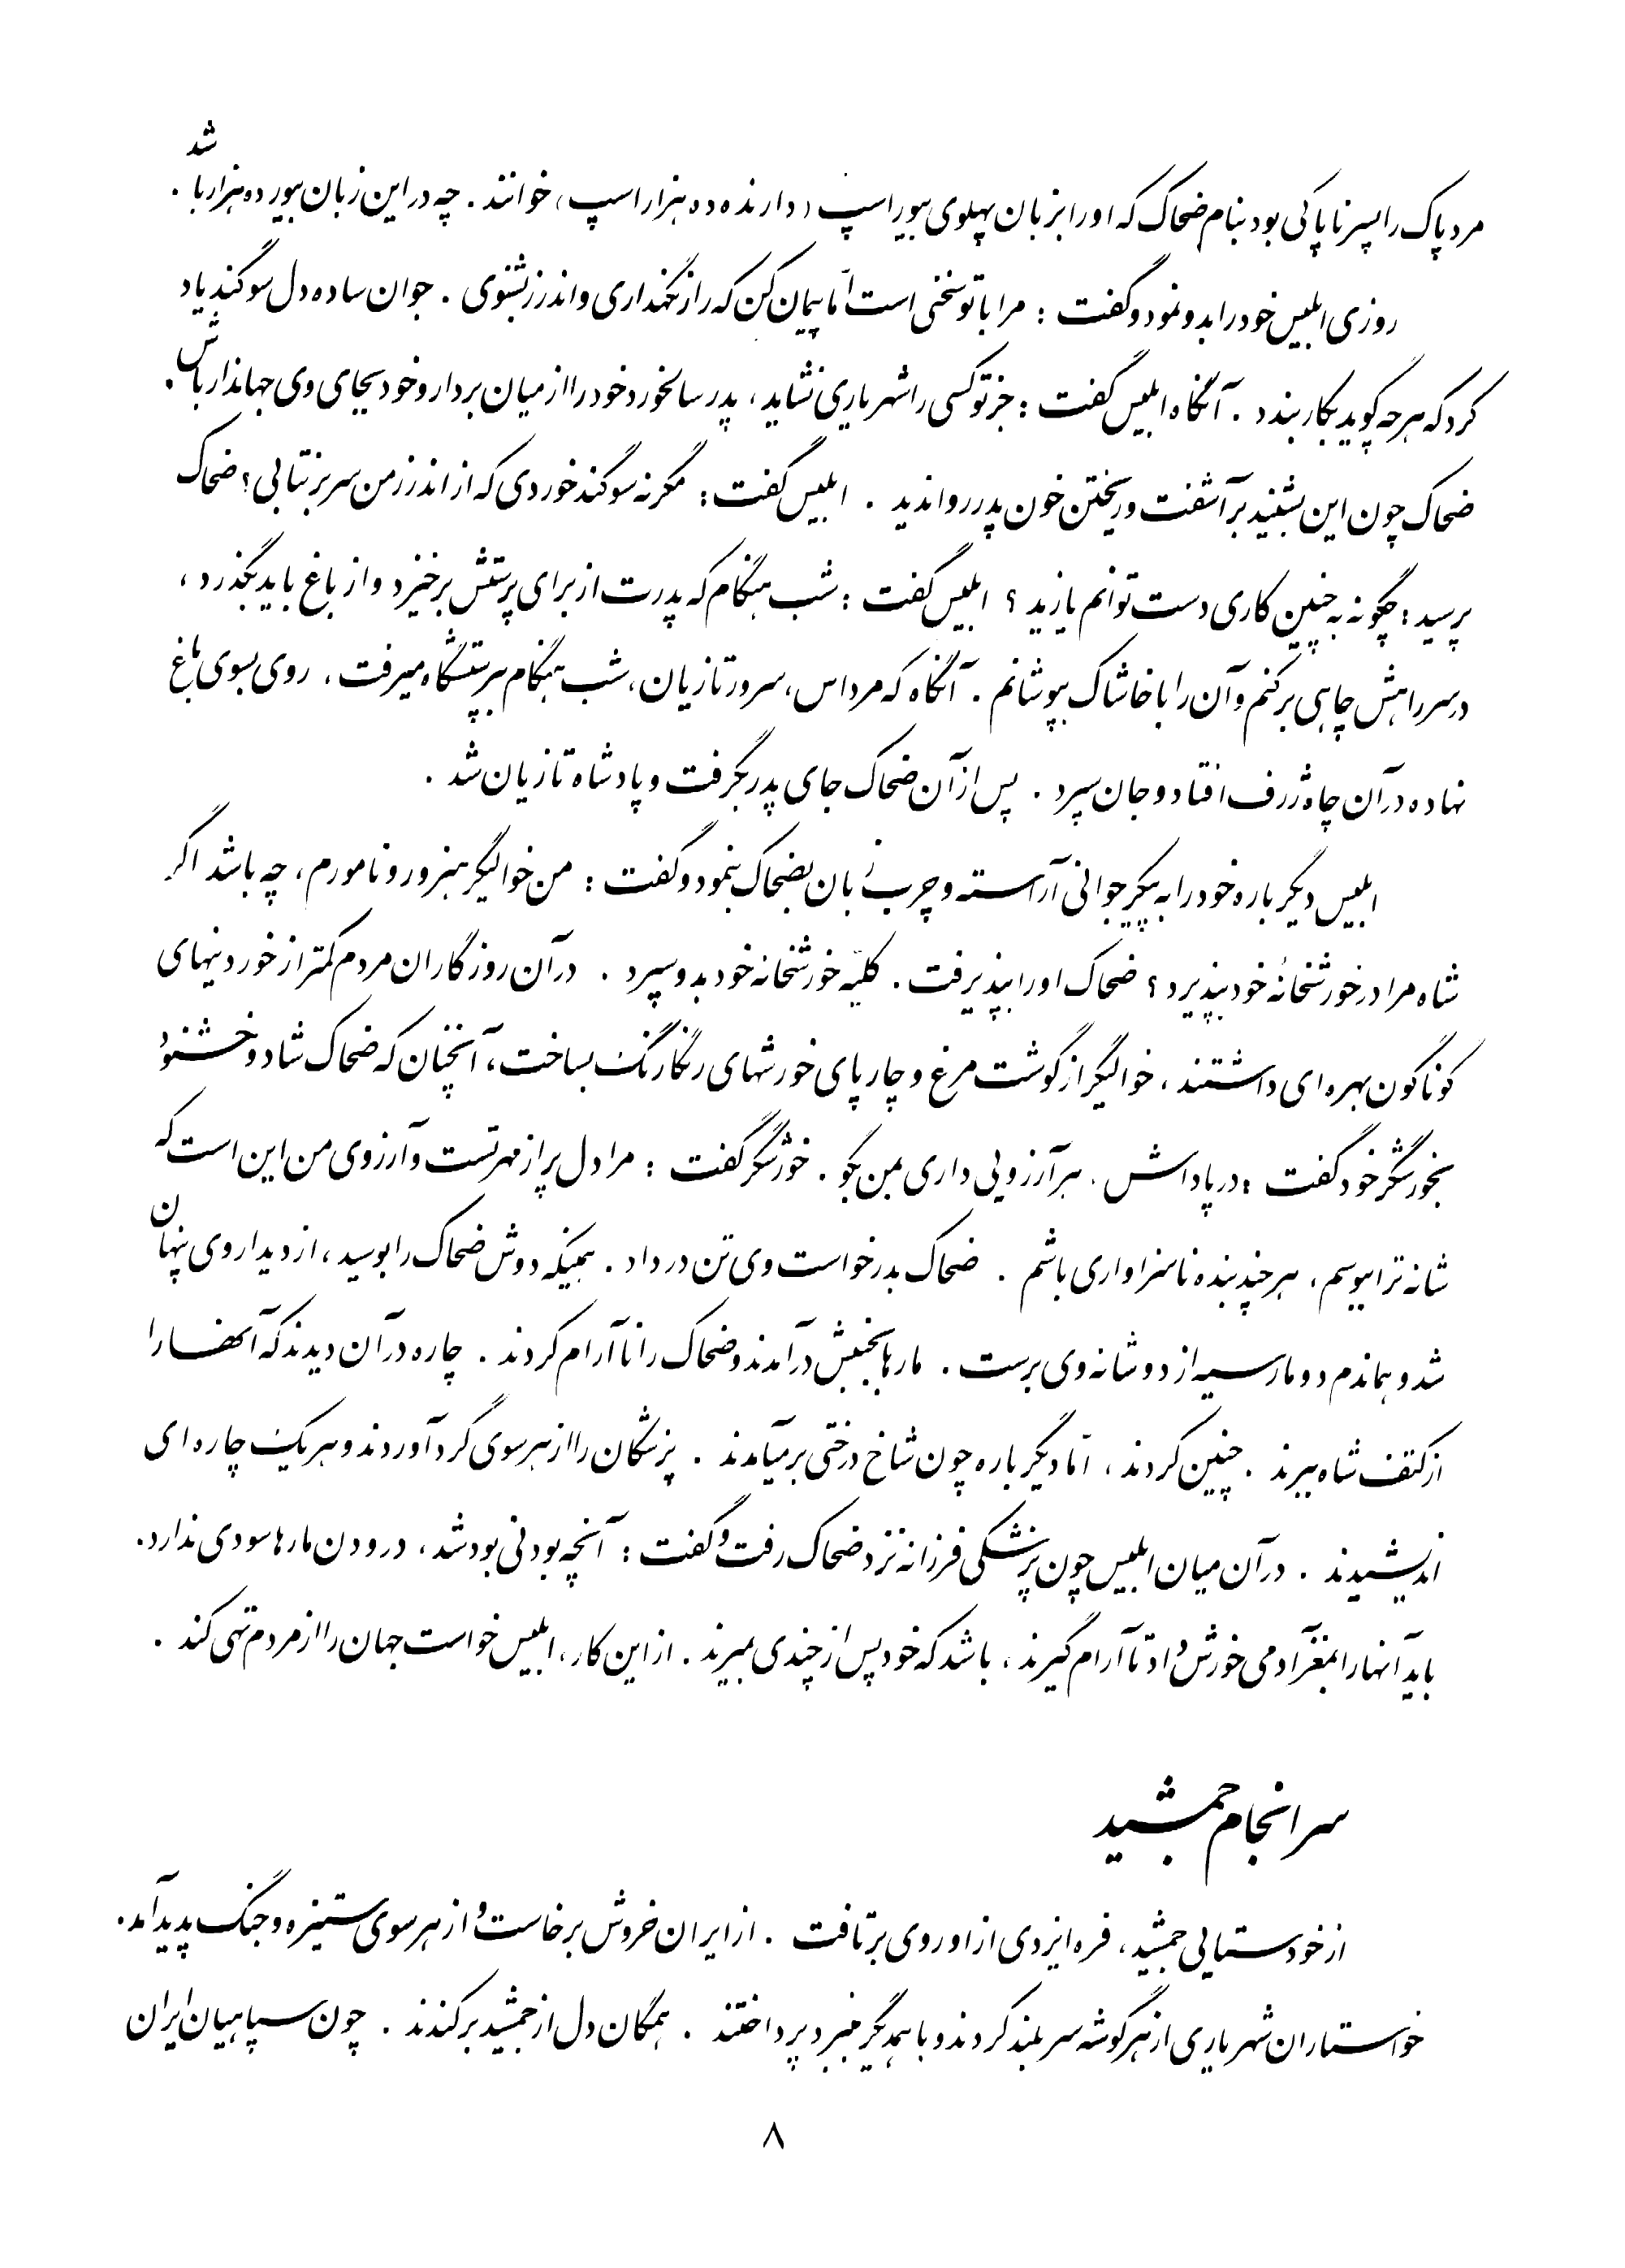 مرد پاک را پسر ناپاکی بود بنام ضحاک که او را بزبان پهلوی بیوراسپ (دارنده ده هزار اسپ) خوانند. چه در این زبان بیور ده هزار باشد.
روزی ابلیس خود را بدو نمود و گفت : مرا با تو سخنی است اما پیمان کن که راز نگهداری و اندرز بشنوی . جوان ساده دل سوگند یاد
کرد که هر چه گوید بکار بندد . آنگاه ابلیس گفت : جز تو کسی را شهریاری نشاید، پدر سالخورد خود را از میان بردار و خود بجای وی جهاندار باش.
ضحاک چون این بشنید برآشفت و ریختن خون پدر روا ندید . ابلیس گفت : مگر نه سوگند خوردی که از اندرز من سر بر نتابی؟ ضحاک
پرسید : چگونه به چنین کاری دست توانم یازید ؟ ابلیس گفت : شب هنگام که پدرت از برای پرستش برخیزد و از باغ باید بگذرد،
در سر راهش چاهی برکنم و آن را با خاشاک بپوشانم . آنگاه که مرداس، سرور تازیان، شب هنگام بپرستشگاه میرفت، روی بسوی باغ
نهاده در آن چاه ژرف افتاد و جان سپرد . پس از آن ضحاک جای پدر بگرفت و پادشاه تازیان شد .
ابلیس دیگر باره خود را به پیکر جوانی آراسته و چرب زبان بضحاک بنمود و گفت : من خوالیگر هنرور و نامورم، چه باشد اگر
شاه مرا در خورشخانهٔ خود بپذیرد ؟ ضحاک او را بپذیرفت . کلیه خورشخانه خود بدو سپرد . در آن روزگاران مردم کمتر از خوردنیهای
گوناگون بهره ای داشتند، خوالیگر از گوشت مرغ و چارپای خورشهای رنگارنگ بساخت، آنچنان که ضحاک شاد و خشنود
بخورشگر خود گفت : در پاداش، هر آرزویی داری بمن بگو . خورشگر گفت : مرا دل پر از مهر تست و آرزوی من این است که
شانه ترا ببوسم، هر چند بنده ناسزاواری باشم . ضحاک بدرخواست وی تن در داد . همینکه دوش ضحاک را بوسید، از دیدار وی پنهان
شد و هماندم دو مار سیه از دو شانه وی برست . مارها بجنبش درآمدند و ضحاک را ناآرام کردند . چاره در آن دیدند که آنها را
از کتف شاه ببرند . چنین کردند، اما دیگر باره چون شاخ درختی برمیآمدند . پزشکان را از هر سوی گرد آوردند و هر یک چاره ای
اندیشیدند . در آن میان ابلیس چون پزشکی فرزانه نزد ضحاک رفت و گفت : آنچه بودنی بود شد، درودن مارها سودی ندارد.
باید آنها را بمغز آدمی خورش داد تا آرام گیرند، باشد که خود پس از چندی بمیرند . از این کار، ابلیس خواست جهان را از مردم تهی کند .
سرانجام جمشید
از خودستایی جمشید، فره ایزدی از او روی برتافت . از ایران خروش برخاست و از هر سوی ستیزه و جنگ پدید آمد.
خواستاران شهریاری از هر گوشه سر بلند کردند و با همدگر بنبرد پرداختند . همگان دل از جمشید برکندند . چون سپاهیان ایران
۸